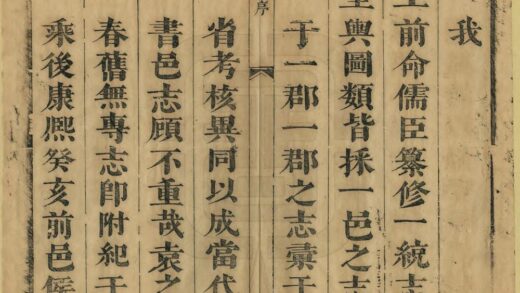 我
上前命儒臣纂修一統志
輿圖類皆採一邑之志
于一郡一郡之志彙于
序
省考核異同以成當代
書邑志顧不重哉袁之
春舊無專志卽附紀于
乘後康熙癸亥前邑侯